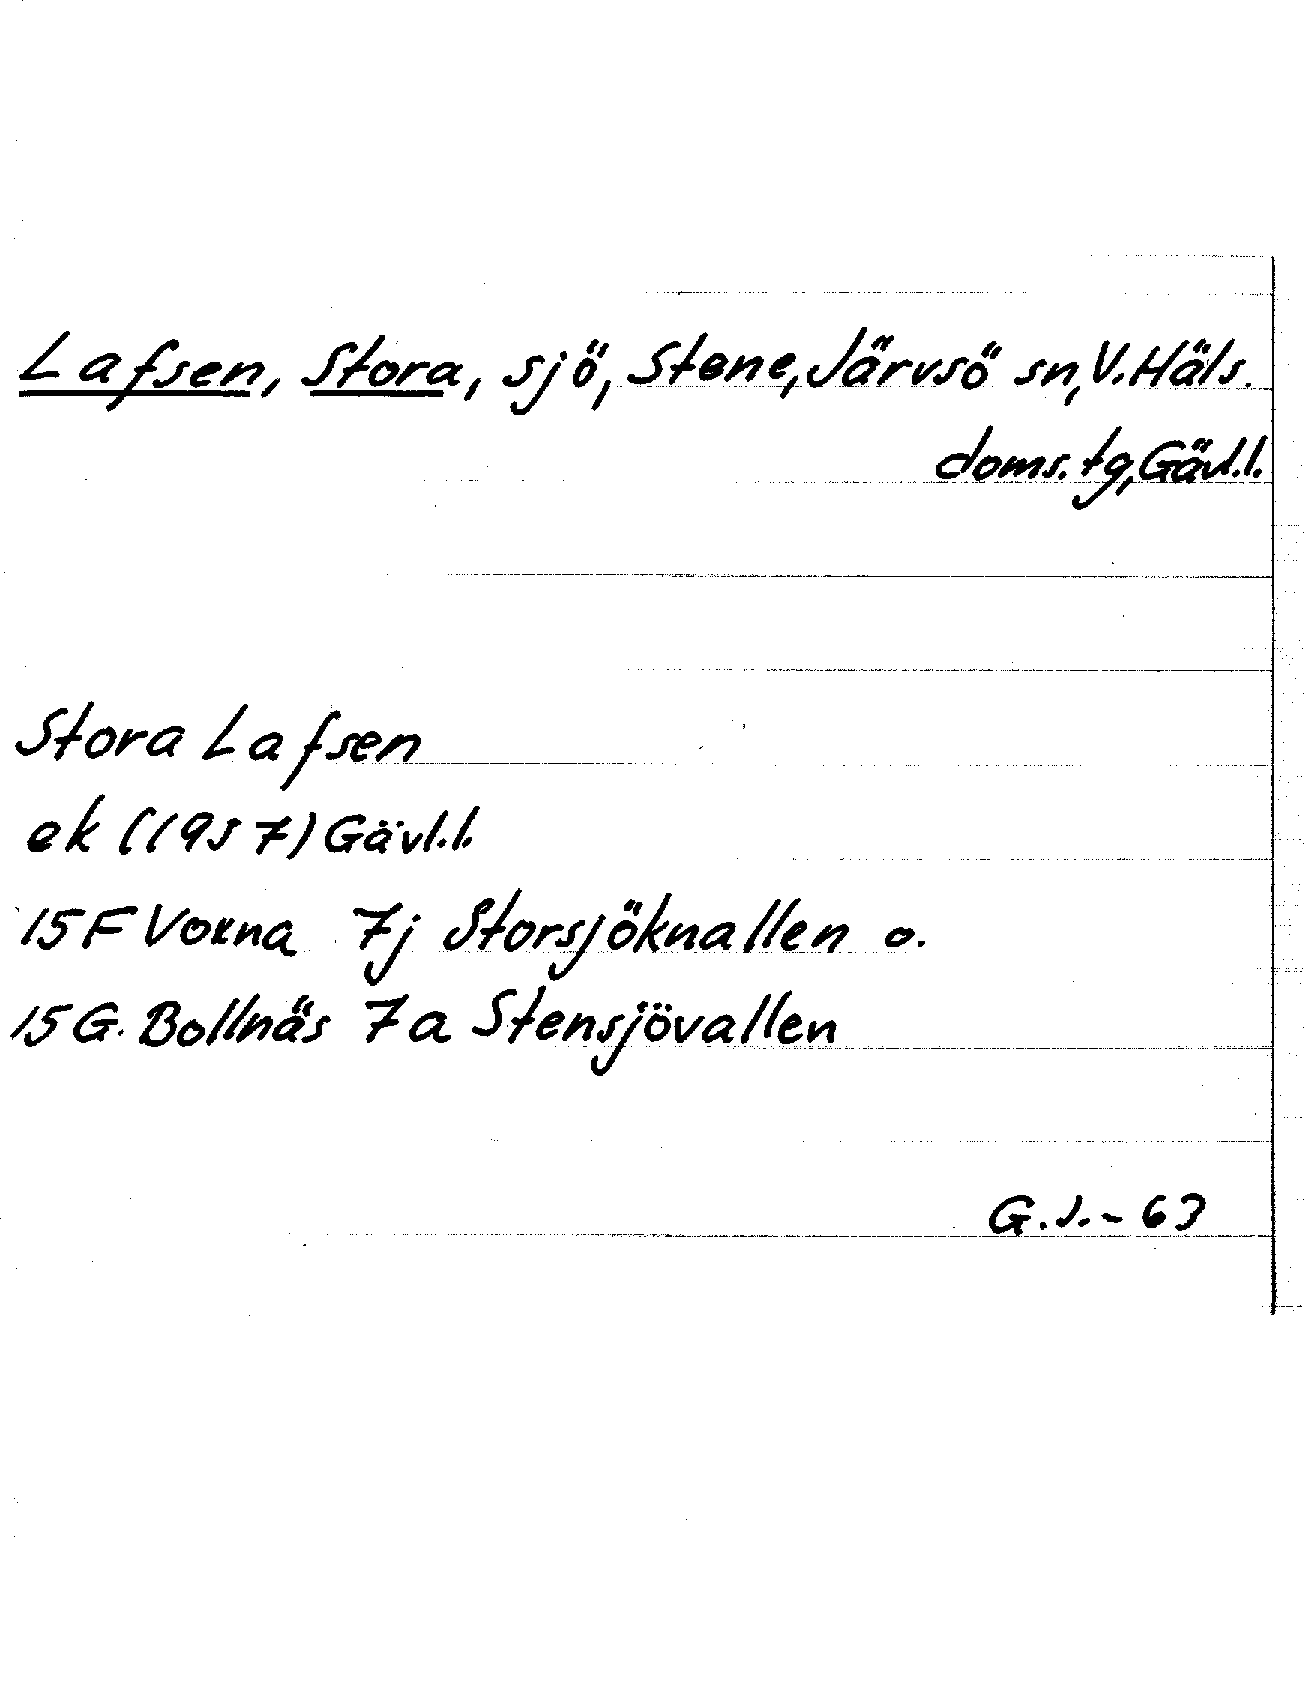 Lafsen, Stora, sjö, Stene, Järvsö sn, V. Häls.
doms. tg, Gävl.l.
Stora Lafsen
ek (1957) Gävl.l.
15 F Voxna 7j Storsjöknallen o.
15 G. Bollnäs 7a Stensjövallen
G.J. - 63